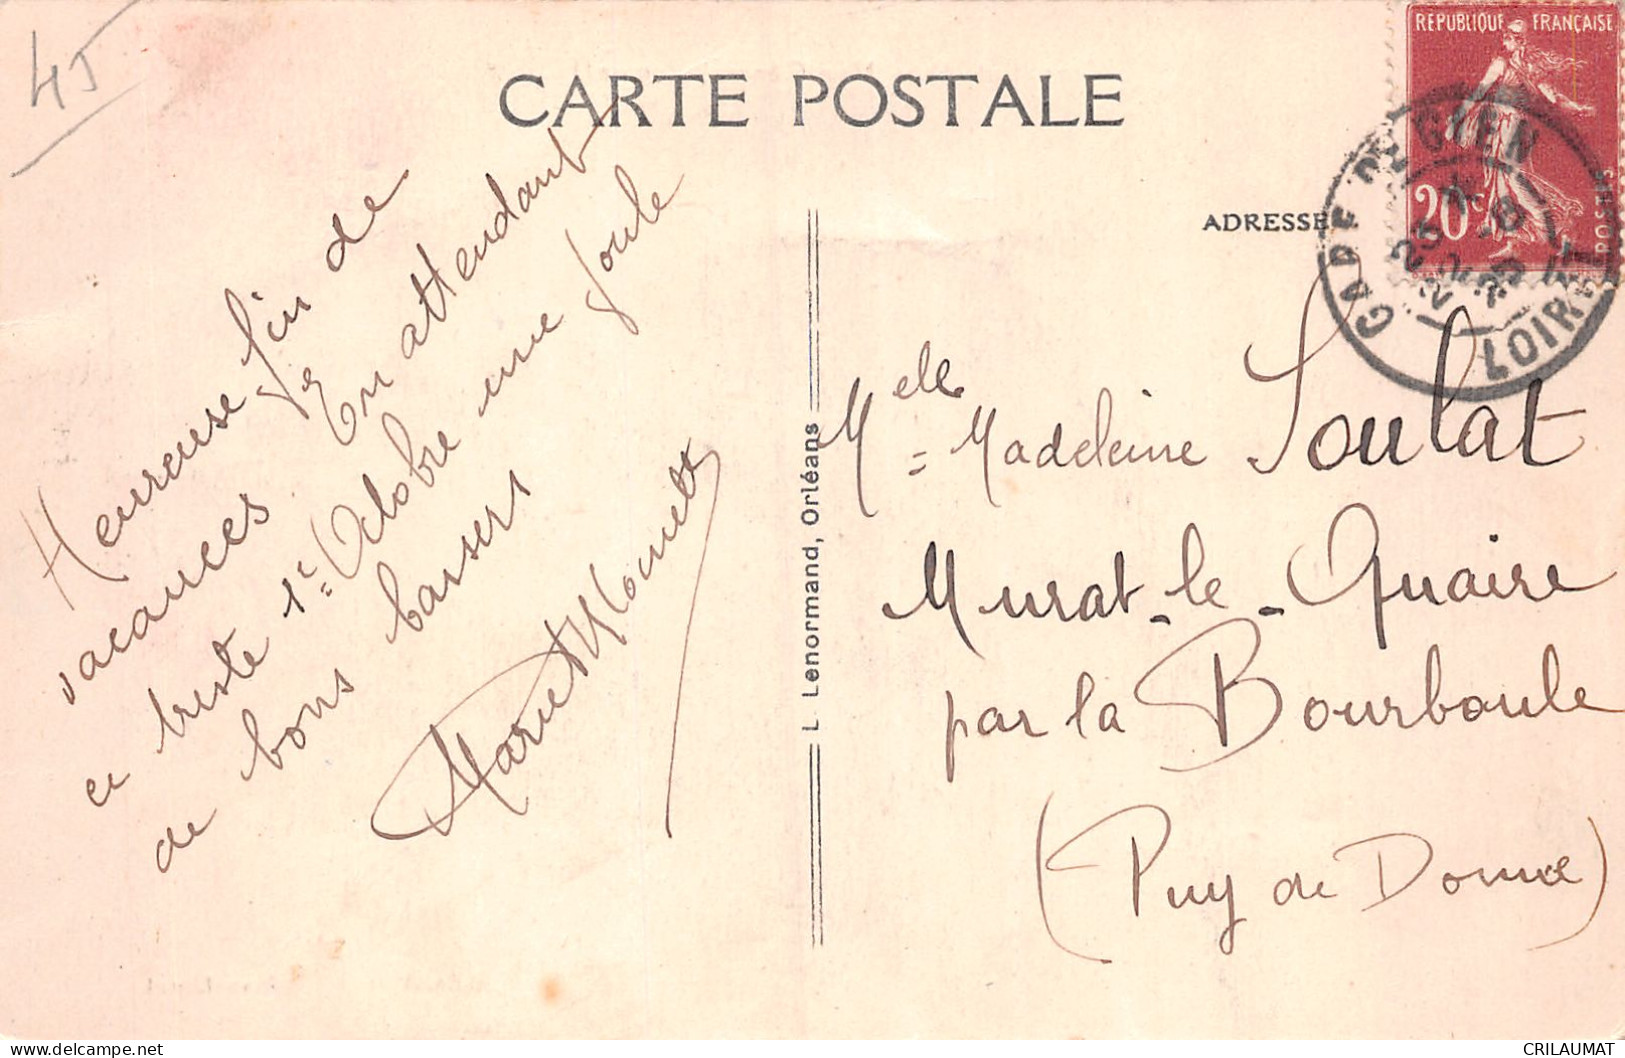 45
CARTE POSTALE
RÉPUBLIQUE FRANÇAISE
20c
POSTES
GARE DE GIEN
LOIRET
ADRESSE
Heureuse fin de
vacances En attendant
ce triste 1er Octobre une foule
de bons baisers
L. Lenormand, Orléans
Melle Madeleine Soulat
Murat-le-Quaire
par la Bourboule
(Puy de Dome)
CRILAUMAT